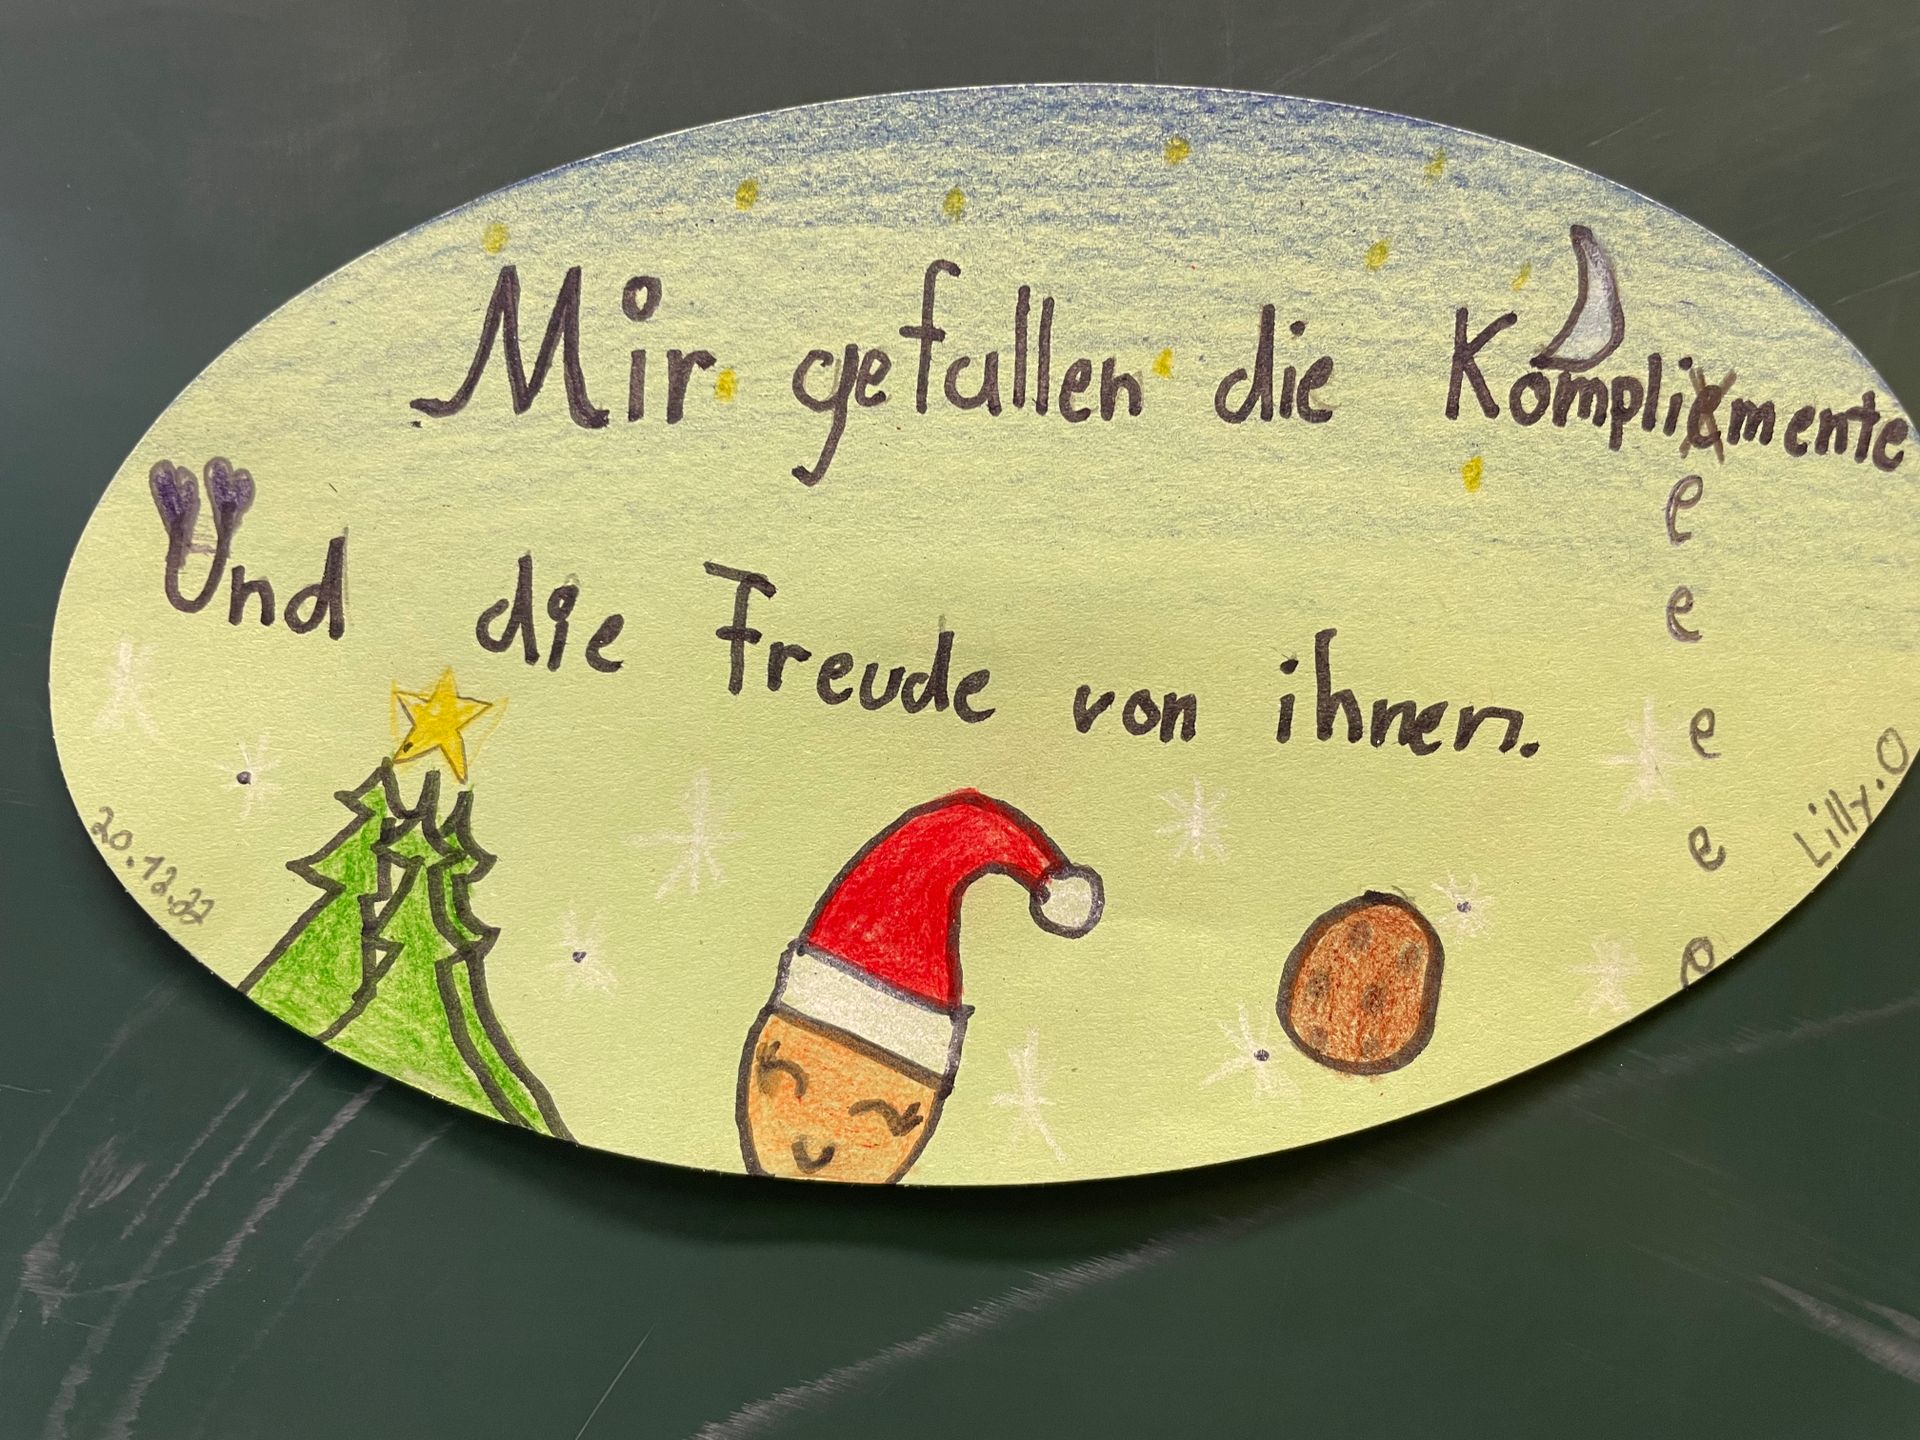 Mir gefallen die Komplimente
Und die Freude von ihnen.
e
e
e
e
e
20.12.22
Lilly.O